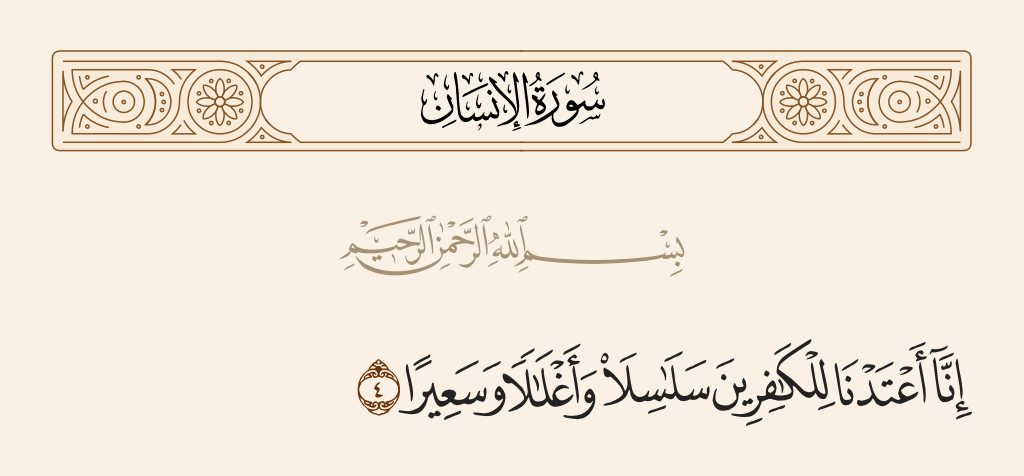 سُورَةُ الإِنسَانِ
بِسْمِ ٱللَّهِ ٱلرَّحْمَٰنِ ٱلرَّحِيمِ
إِنَّآ أَعْتَدْنَا لِلْكَٰفِرِينَ سَلَٰسِلَا۟ وَأَغْلَٰلًا وَسَعِيرًا ٤